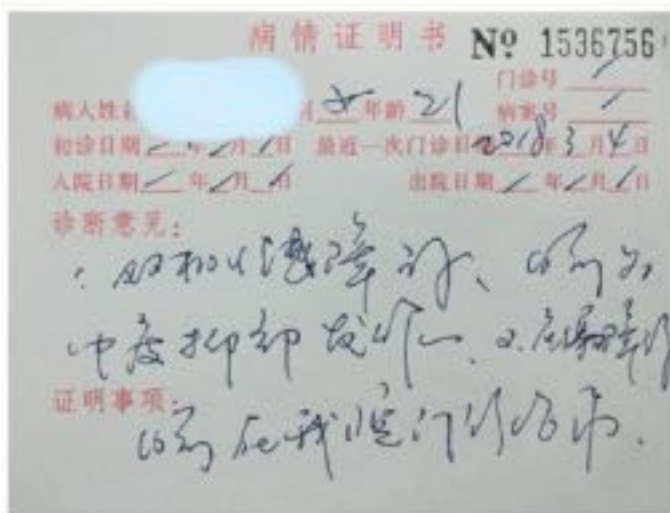 病情证明书 Nº 1536756
门诊号 /
病人姓 女 年龄 21 病案号 /
初诊日期 / 年 / 月 / 日 最近一次门诊日 2018 3 月 4 日
入院日期 / 年 / 月 / 日 出院日期 / 年 / 月 / 日
诊断意见:
双相情感障碍、目前为
中度抑郁发作
证明事项:
目前在我院门诊治疗.